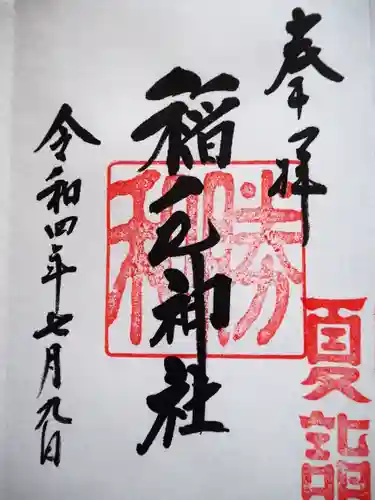 奉拝
夏詣
勝和
稲毛神社
令和四年七月九日